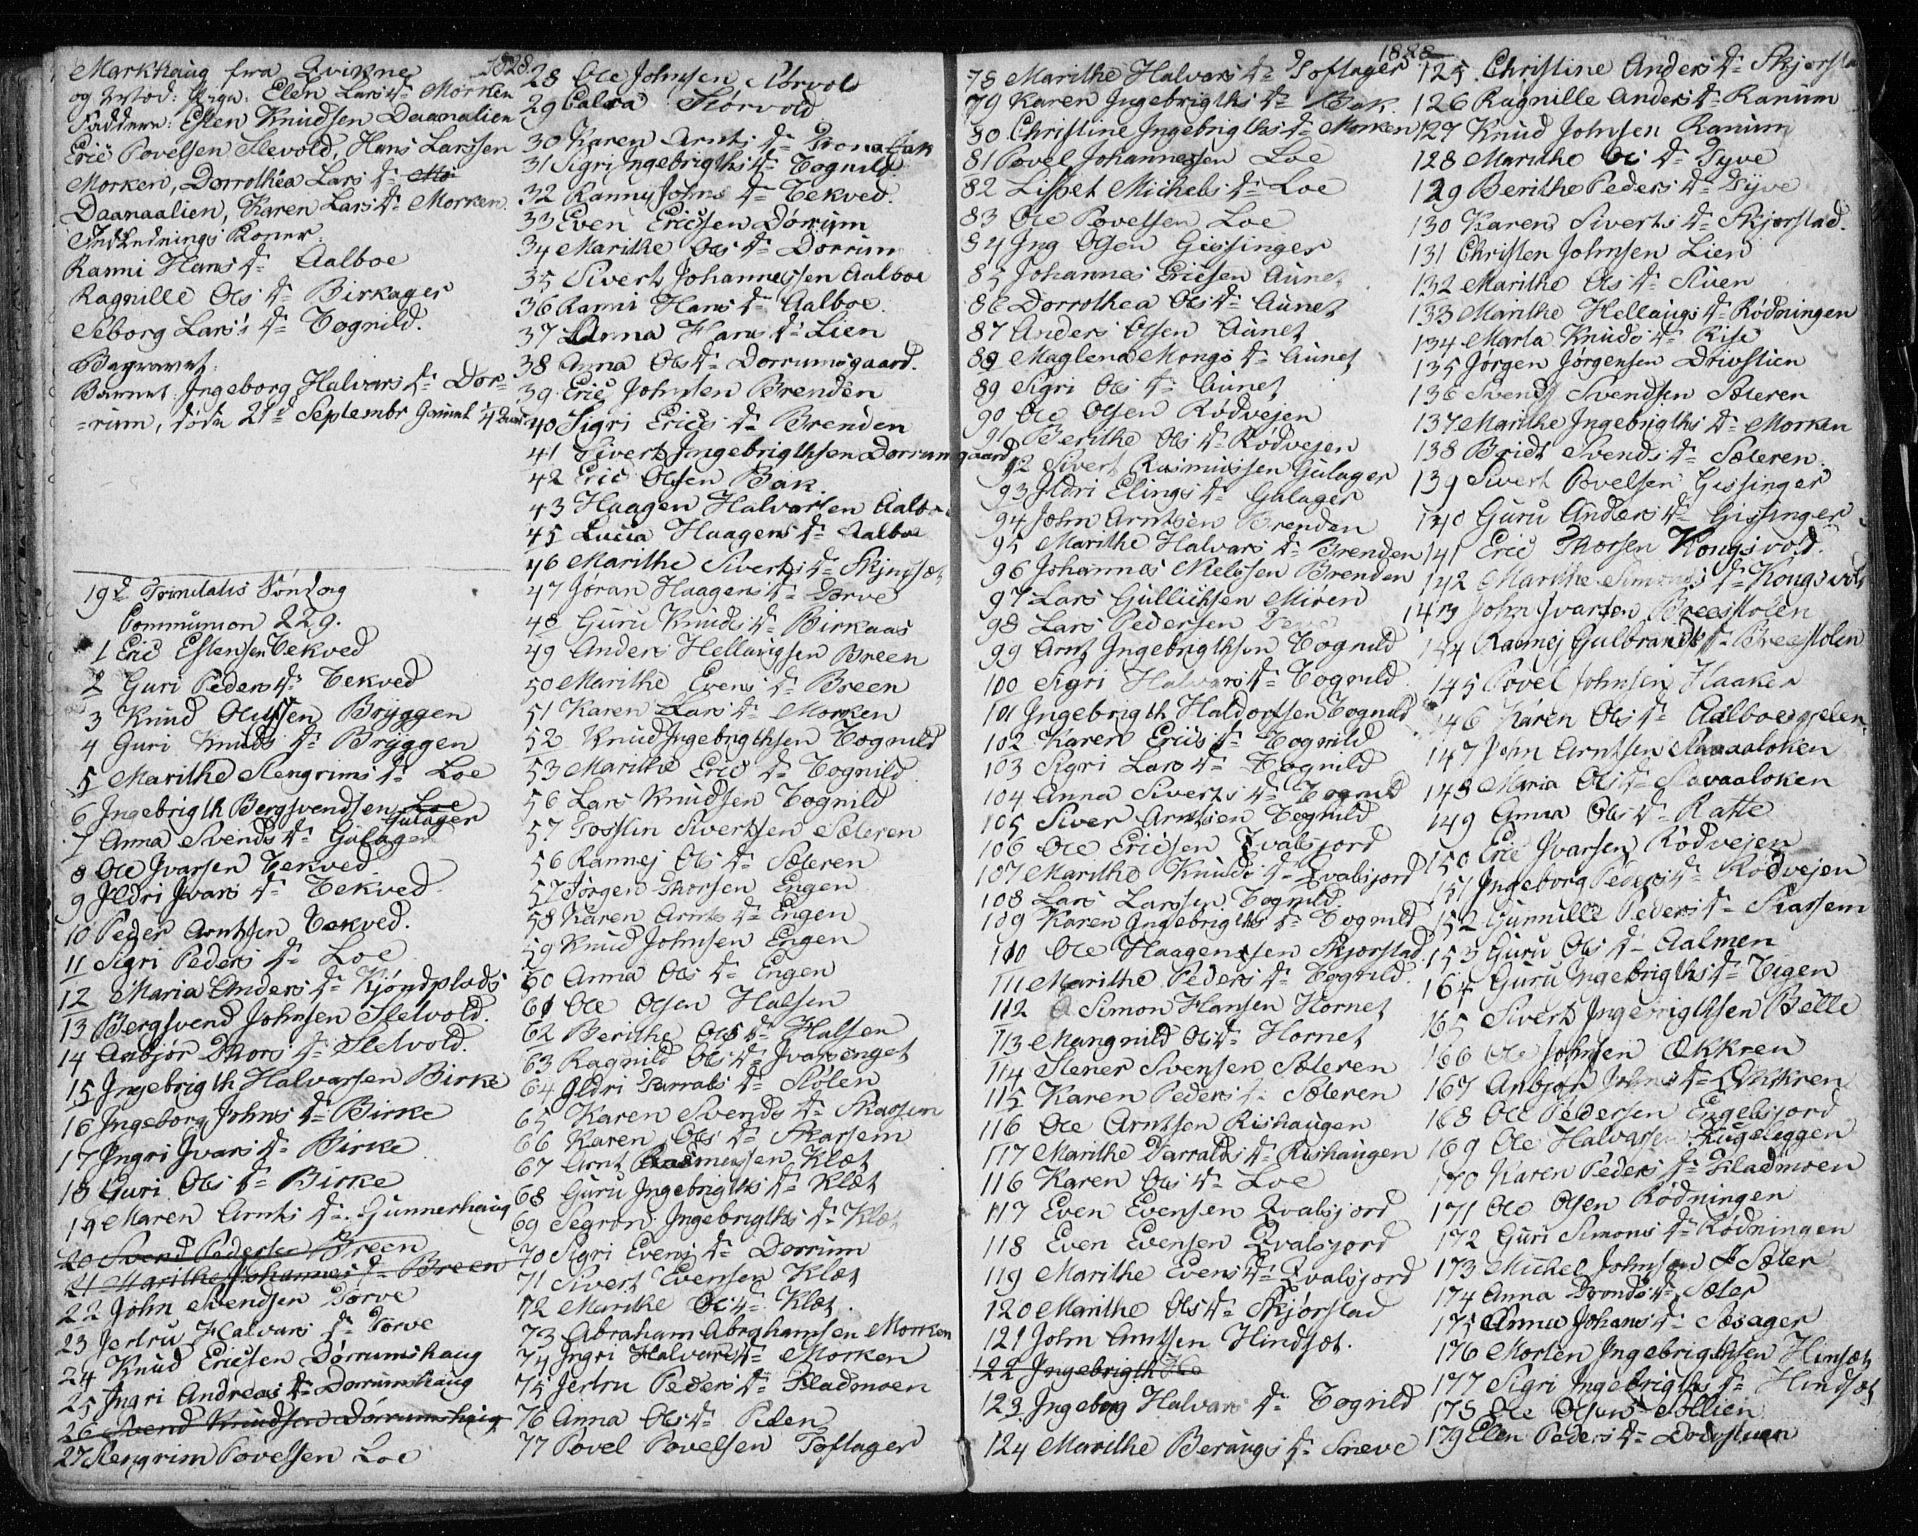 1828.
Markhaug fra Qvikne
og Wed: Pige: Elen Lars Dr Morken
Faddere: Esten Knudsen Daanalien
Eric Povelsen Slevold, Hans Larssen
Morken, Dorrothea Lars Dr Mo
Daanaalien, Karen Lars Dr Morken.
Indlednings Koner:
Ranni Hans Dr Aalboe
Ragnille Ols Dr Birkager
Seborg Lars's Dr Tognild.
Begravet:
Barnet Ingeborg Halvars Dr Dor-
=rum, døde 21de Septembr Gamel 4
19de Trinitatis Søndag
Communion 229.
1 Eric Estensen Vekved
2 Guri Peders Dr Vekved
3 Knud Olufsen Bryggen
4 Guri Knuds Dr Bryggen
5 Marithe Stengrims Dr Loe
6 Ingebrigth Bergsvendsen Loe Gulager
7 Anna Svends Dr Gulager
8 Ole Jvarsen Vekved
9 Jldri Jvars Dr Vekved.
10 Peder Arntsen Vekved.
11 Sigri Peders Dr Loe
12 Maria Anders Dr Kjøndplads
13 Bergsvend Johnsen Sletvold.
14 Anbjør Thors Dr Sletvold.
15 Ingebrigth Halvarsen Birke
16 Ingeborg Johns Dr Birke
17 Jngri Jvars Dr Birke
18 Guri Ols Dr Birke
19 Maren Arnts Dr Gunnerhaug
20 Svend Pedersen Breen
21 Marithe Johannes Dr Breen
22 John Svendsen Torve
23 Jertru Halvars Dr Torve
24 Knud Ericsen Dørrumshaug
25 Jngri Andreas Dr Dorrumshaug
26 Svend Knudsen Dørrumshaug
27 Stengrim Povelsen Loe
28 Ole Johnsen Storvold
29 Storvold
30 Karen Arnts Dr
31 Sigri Ingebrigths Dr Tognild
32 Ranny Johns Dr Vekved.
33 Even Ericksen Dørrum
34 Marithe Ols Dr Dorrum
35 Sivert Johannessen Aalboe
36 Ranni Hans Dr Aalboe.
37 Anna Hans Dr Lien
38 Anna Ols Dr Dorrumsgaard.
39 Eric Johnsen Brenden
40 Sigri Erics Dr Brenden
41 Sivert Jngebrigthsen Dorrumsgaard
42 Eric Olsen Bak
43 Haagen Halvarsen Aalboe
45 Lucia Haagens Dr Aalboe
46 Marithe Siverts Dr
47 Jøran Haagens Dr Torve
48 Guru Knuds Dr Birkaas
49 Anders Hellaugsen Breen
50 Marithe Evens Dr Breen
51 Karen Lars Dr Morken
52 Knud Jngebrigthsen Tognild
53 Marithe Erics Dr Tognild
56 Lars Knudsen Tognild
57 Tostin Sivertsen Sæteren
56 Rannej Ols Dr Sæteren
57 Jørgen Thorsen Engen
58 Karen Arnts Dr Engen
59 Knud Johnsen Engen
60 Anna Ols Dr Engen
61 Ole Olsen Halsen
62 Berithe Ols Dr Halsen
63 Ragnild Ols Dr Jvarsenget
64 Jldri Tarrals Dr Stølen
65 Karen Svends Dr Skarsem
66 Karen Ols Dr Skarsem
67 Arnt Rasmussen Klæt
68 Guru Jngebrigths Dr Klæt
69 Segron Jngebrigths Dr Klæt
70 Sigri Evens Dr Dorrum
71 Sivert Evensen Klæt
72 Marithe Ols Dr Klæt.
73 Abraham Abrahamsen Morken
74 Jngri Halvars Dr Morken
75 Jertru Peders Dr Hladmoen
76 Anna Ols Dr
77 Povel Povelsen Toflager
1828
78 Marithe Halvars Dr Toflager
79 Karen Jngebrigths Dr Bak
80 Christine Jngebrigths Dr Morken
81 Povel Johannessen Loe
82 Lisbet Michels Dr Loe
83 Ole Povelsen Loe
84 Jng Olsen Gissinger
85 Johannes Ericsen Aunet
86 Dorrothea Ols Dr Aunet
87 Anders Olsen Aunet
88 Maglena Mongs Dr Aunet
89 Sigri Ols Dr Aunet
90 Ole Olsen Rødvejen
91 Berithe Ols Dr Rødvejen
92 Sivert Rasmussen Gulager
93 Jldri Elings Dr Gulager
94 John Arntsen Brenden
95 Marithe Halvars Dr Brenden
96 Johannes Nielssen Brenden
97 Lars Gullichsen Miren
98 Lars Pedersen
99 Arnt Jngebrigthsen Tognild
100 Sigri Halvars Dr Tognild
101 Jngebrigth Haldorsen Tognild
102 Karen Erics Dr Tognild
103 Sigri Lars Dr Tognild
104 Anna Siverts Dr Tognild
105 Siver Arntsen Tognild
106 Ole Ericsen Qvalsjord
107 Marithe Knuds Dr Qvalsjord
108 Lars Larssen Tognild
109 Karen Jngebrigths Dr Tognild
110 Ole Haagensen Skjorstad
111 Marithe Peders Dr Tognild
112 Simon Hansen Hornet
113 Mangnild Ols Dr Hornet
114 Stener Svensen Sæteren
115 Karen Peders Dr Sæteren
116 Ole Arntsen Rishaugen
117 Marithe Tarralds Dr Rishaugen
116 Karen Ols Dr Loe
117 Even Evensen Qvalsjord
118 Even Evensen Qvalsjord
119 Marithe Evens Dr Qvalsjord
120 Marithe Ols Dr Skjørstad
121 John Arntsen Hindsæt.
122 Jngebrigth
123 Jngeborg Halvars Dr Tognild
124 Marithe Beraugs Dr
125 Christine Anders Dr Skjørsta
126 Ragnille Anders Dr Ranum
127 Knud Johnsen Ranum
128 Marithe Ols Dr Tyve
129 Berithe Peders Dr Tyve
130 Karen Siverts Dr Skjørstad.
131 Christen Johnsen Lien
132 Marithe Ols Dr Siven
133 Marithe Hellaugs Dr Rødningen
134 Marta Knuds Dr Rise
135 Jørgen Jørgensen Drivstuen
136 Svend Svendsen Sæteren
137 Marithe Jngebrigths Dr Morken
138 Bridt Svends Dr Sæteren.
139 Sivert Povelsen Gissinger
140 Guru Anders Dr Gissinger
141 Eric Thorsen Kongsvold.
142 Marithe Simons Dr Kongsvold
143 John Jvarsen Breestolen
144 Rannej Gulbrands Dr Breestolen
145 Povel Johnsen Haaker
146 Karen Ols Dr
147 John Arntsen
148 Maria Ols Dr
149 Anna Ols Dr
150 Eric Jvarsen Rødvejen
151 Jngeborg Peders Dr Rødvejen
152 Gunnille Peders Dr Skarsem
153 Guru Ols Dr Aalmen
164 Guru Jngebrigths Dr Vigen
165 Sivert Jngebrigthsen Bøtte
166 Ole Johnsen Økkren
167 Anbjør Johns Dr Økkren
168 Ole Pedersen Engelsjord
169 Ole Halvarsen Rugeleggen
170 Karen Peders Dr Hladmoen
171 Ole Olsen Rødningen
172 Guri Simons Dr Rødningen
173 Michel Johnsen Sæter
174 Anna Tronds Dr Sæter
175 Anna Johans Dr Sæsager
176 Morten Jngebrigthsen Hinsæt
177 Sigri Jngebrigths Dr Hindsæt
178 Ole Olsen Sollien
179 Elen Peders Dr Drivstuen